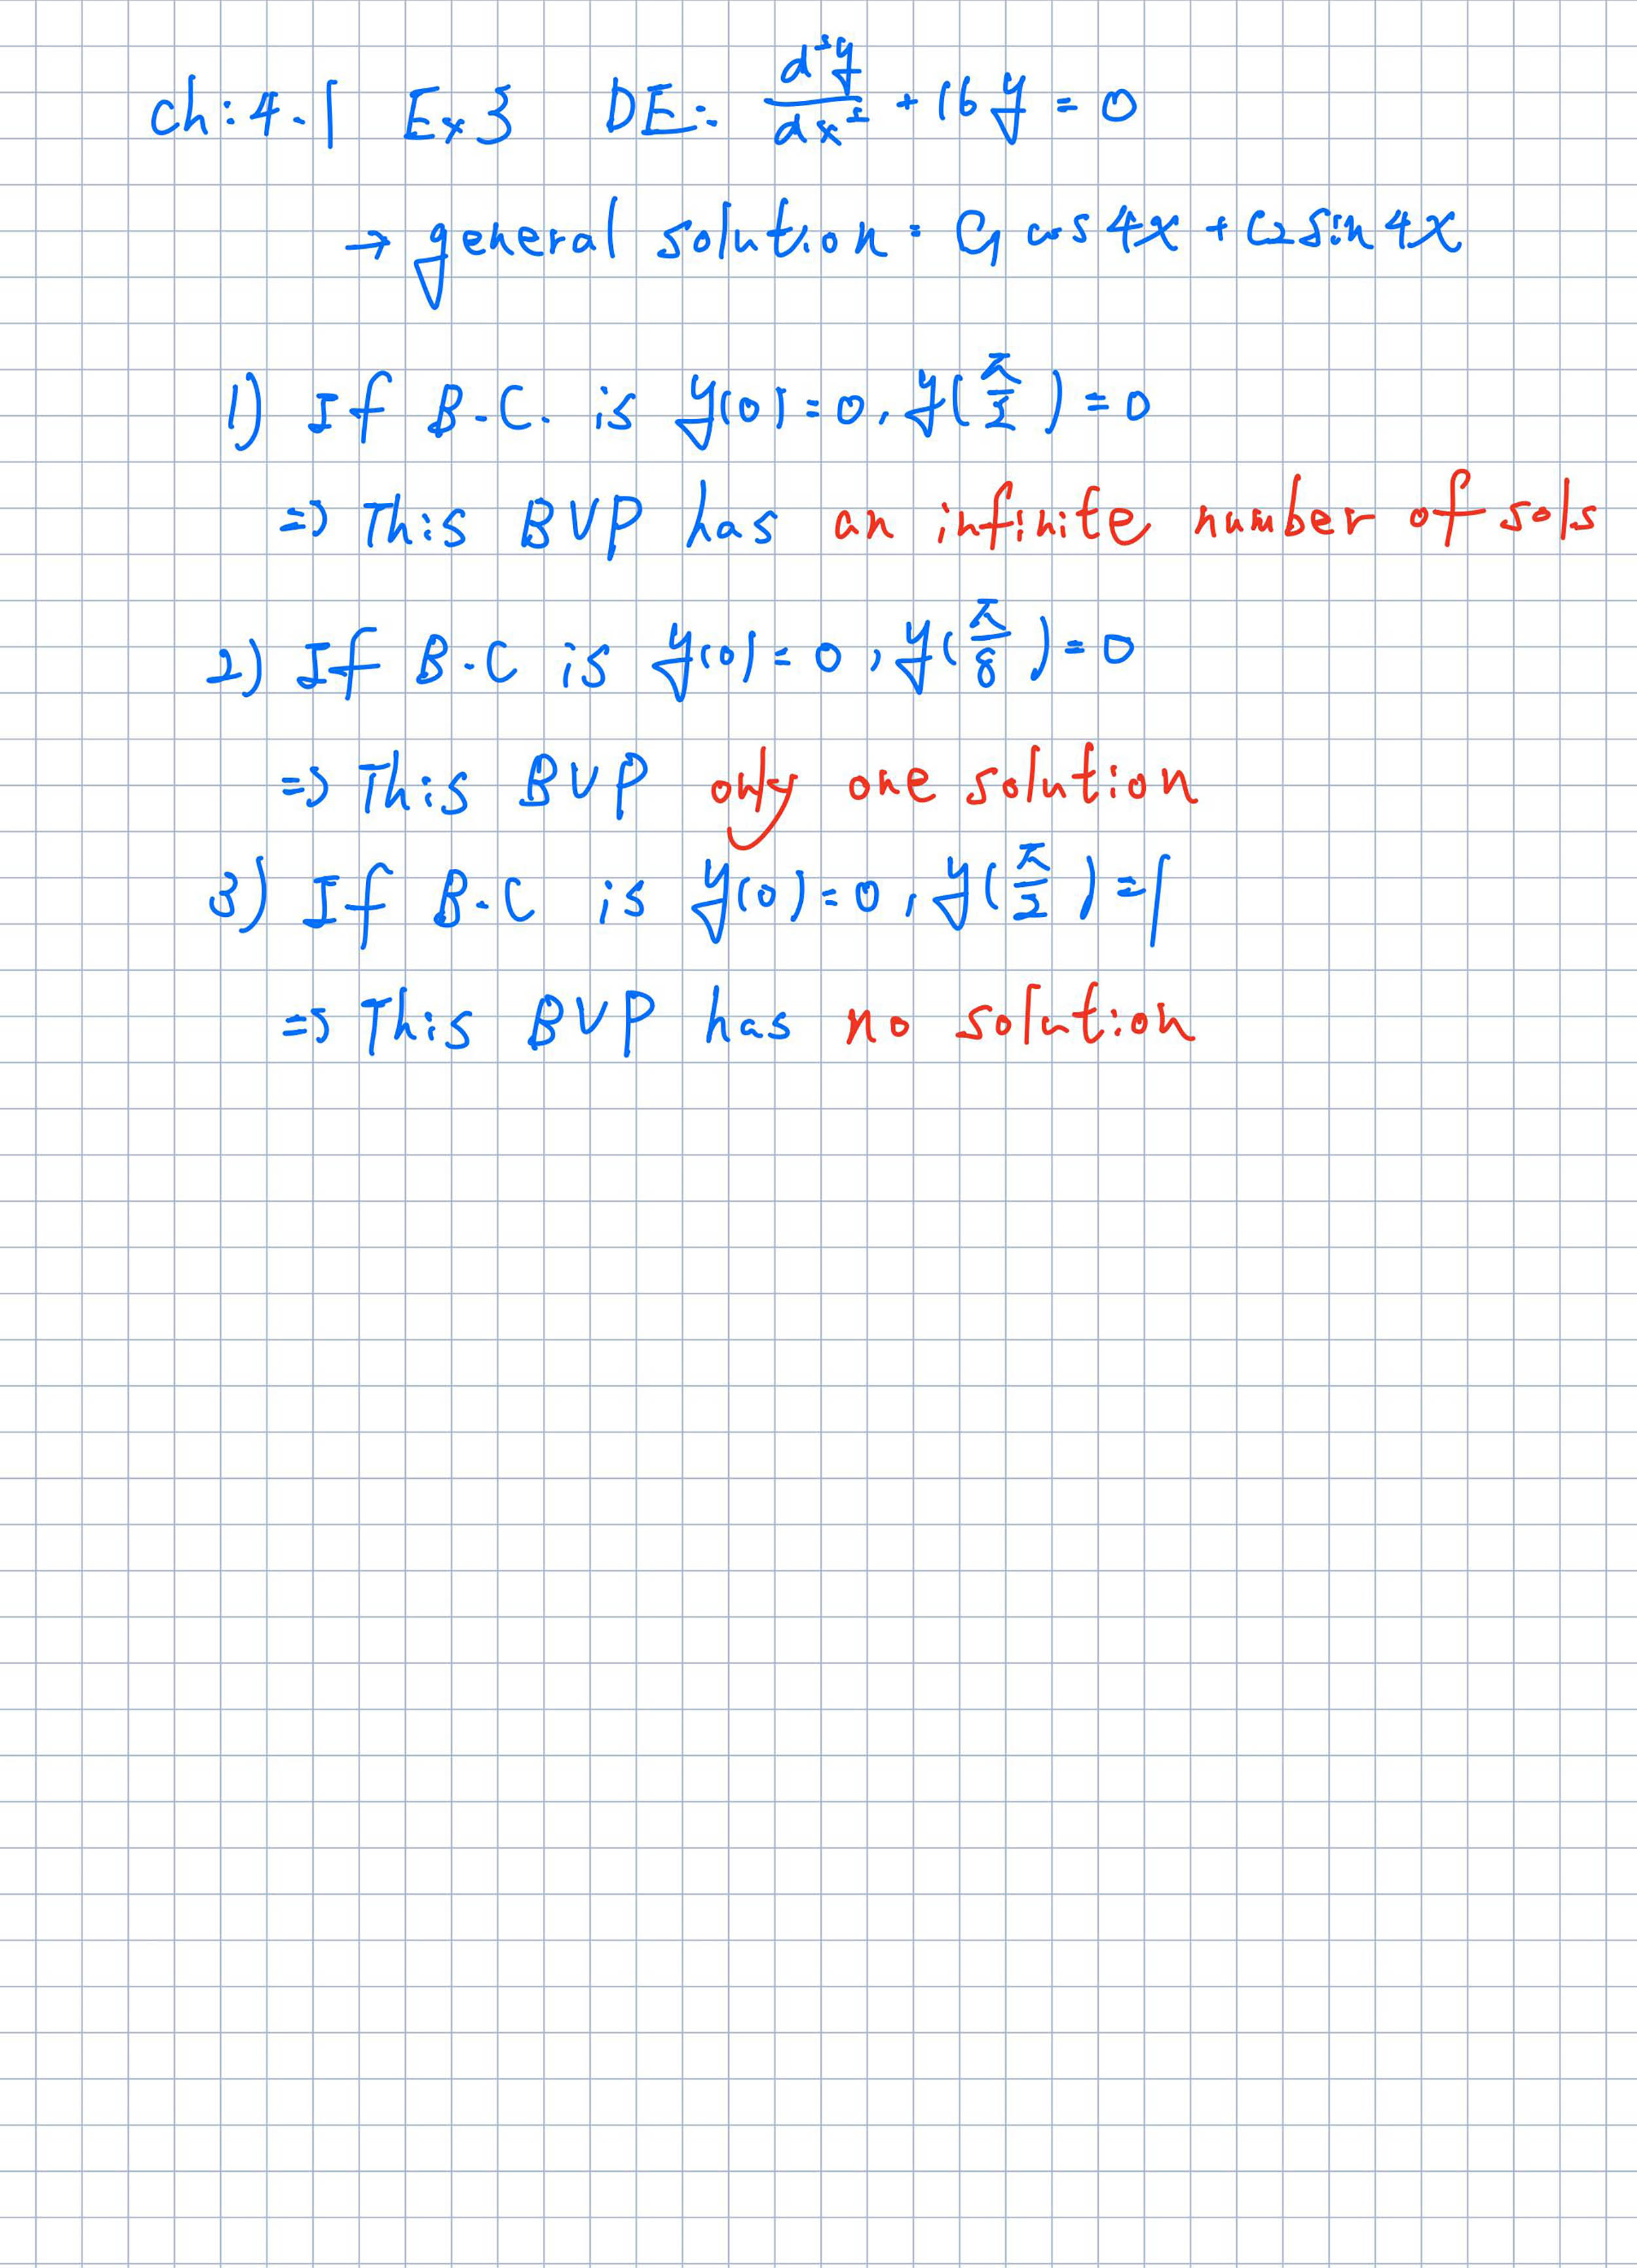 ch:4.1 Ex3 DE: d²y/dx² + 16y = 0
→ general solution: C₁ cos4x + C₂ sin 4x
1) If B.C. is y(0)=0, y(π/2)=0
⇒ This BVP has an infinite number of sols
2) If B.C is y(0)=0, y(π/8)=0
⇒ This BVP only one solution
3) If B.C is y(0)=0, y(π/2)=1
⇒ This BVP has no solution